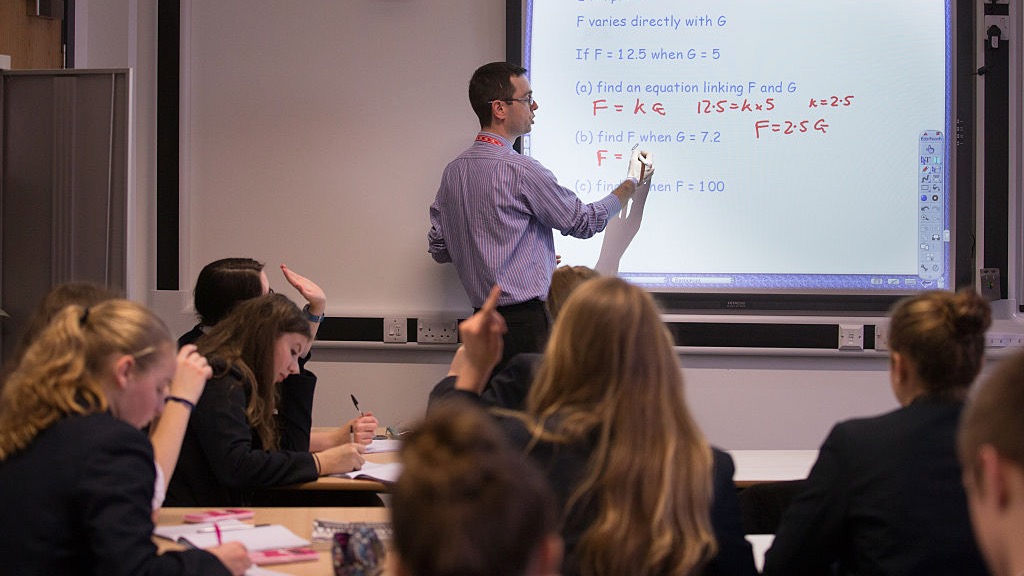 F varies directly with G
If F = 12.5 when G = 5
(a) find an equation linking F and G
F = k G 12.5 = k x 5 k = 2.5
F = 2.5 G
(b) find F when G = 7.2
F =
(c) find hen F = 100